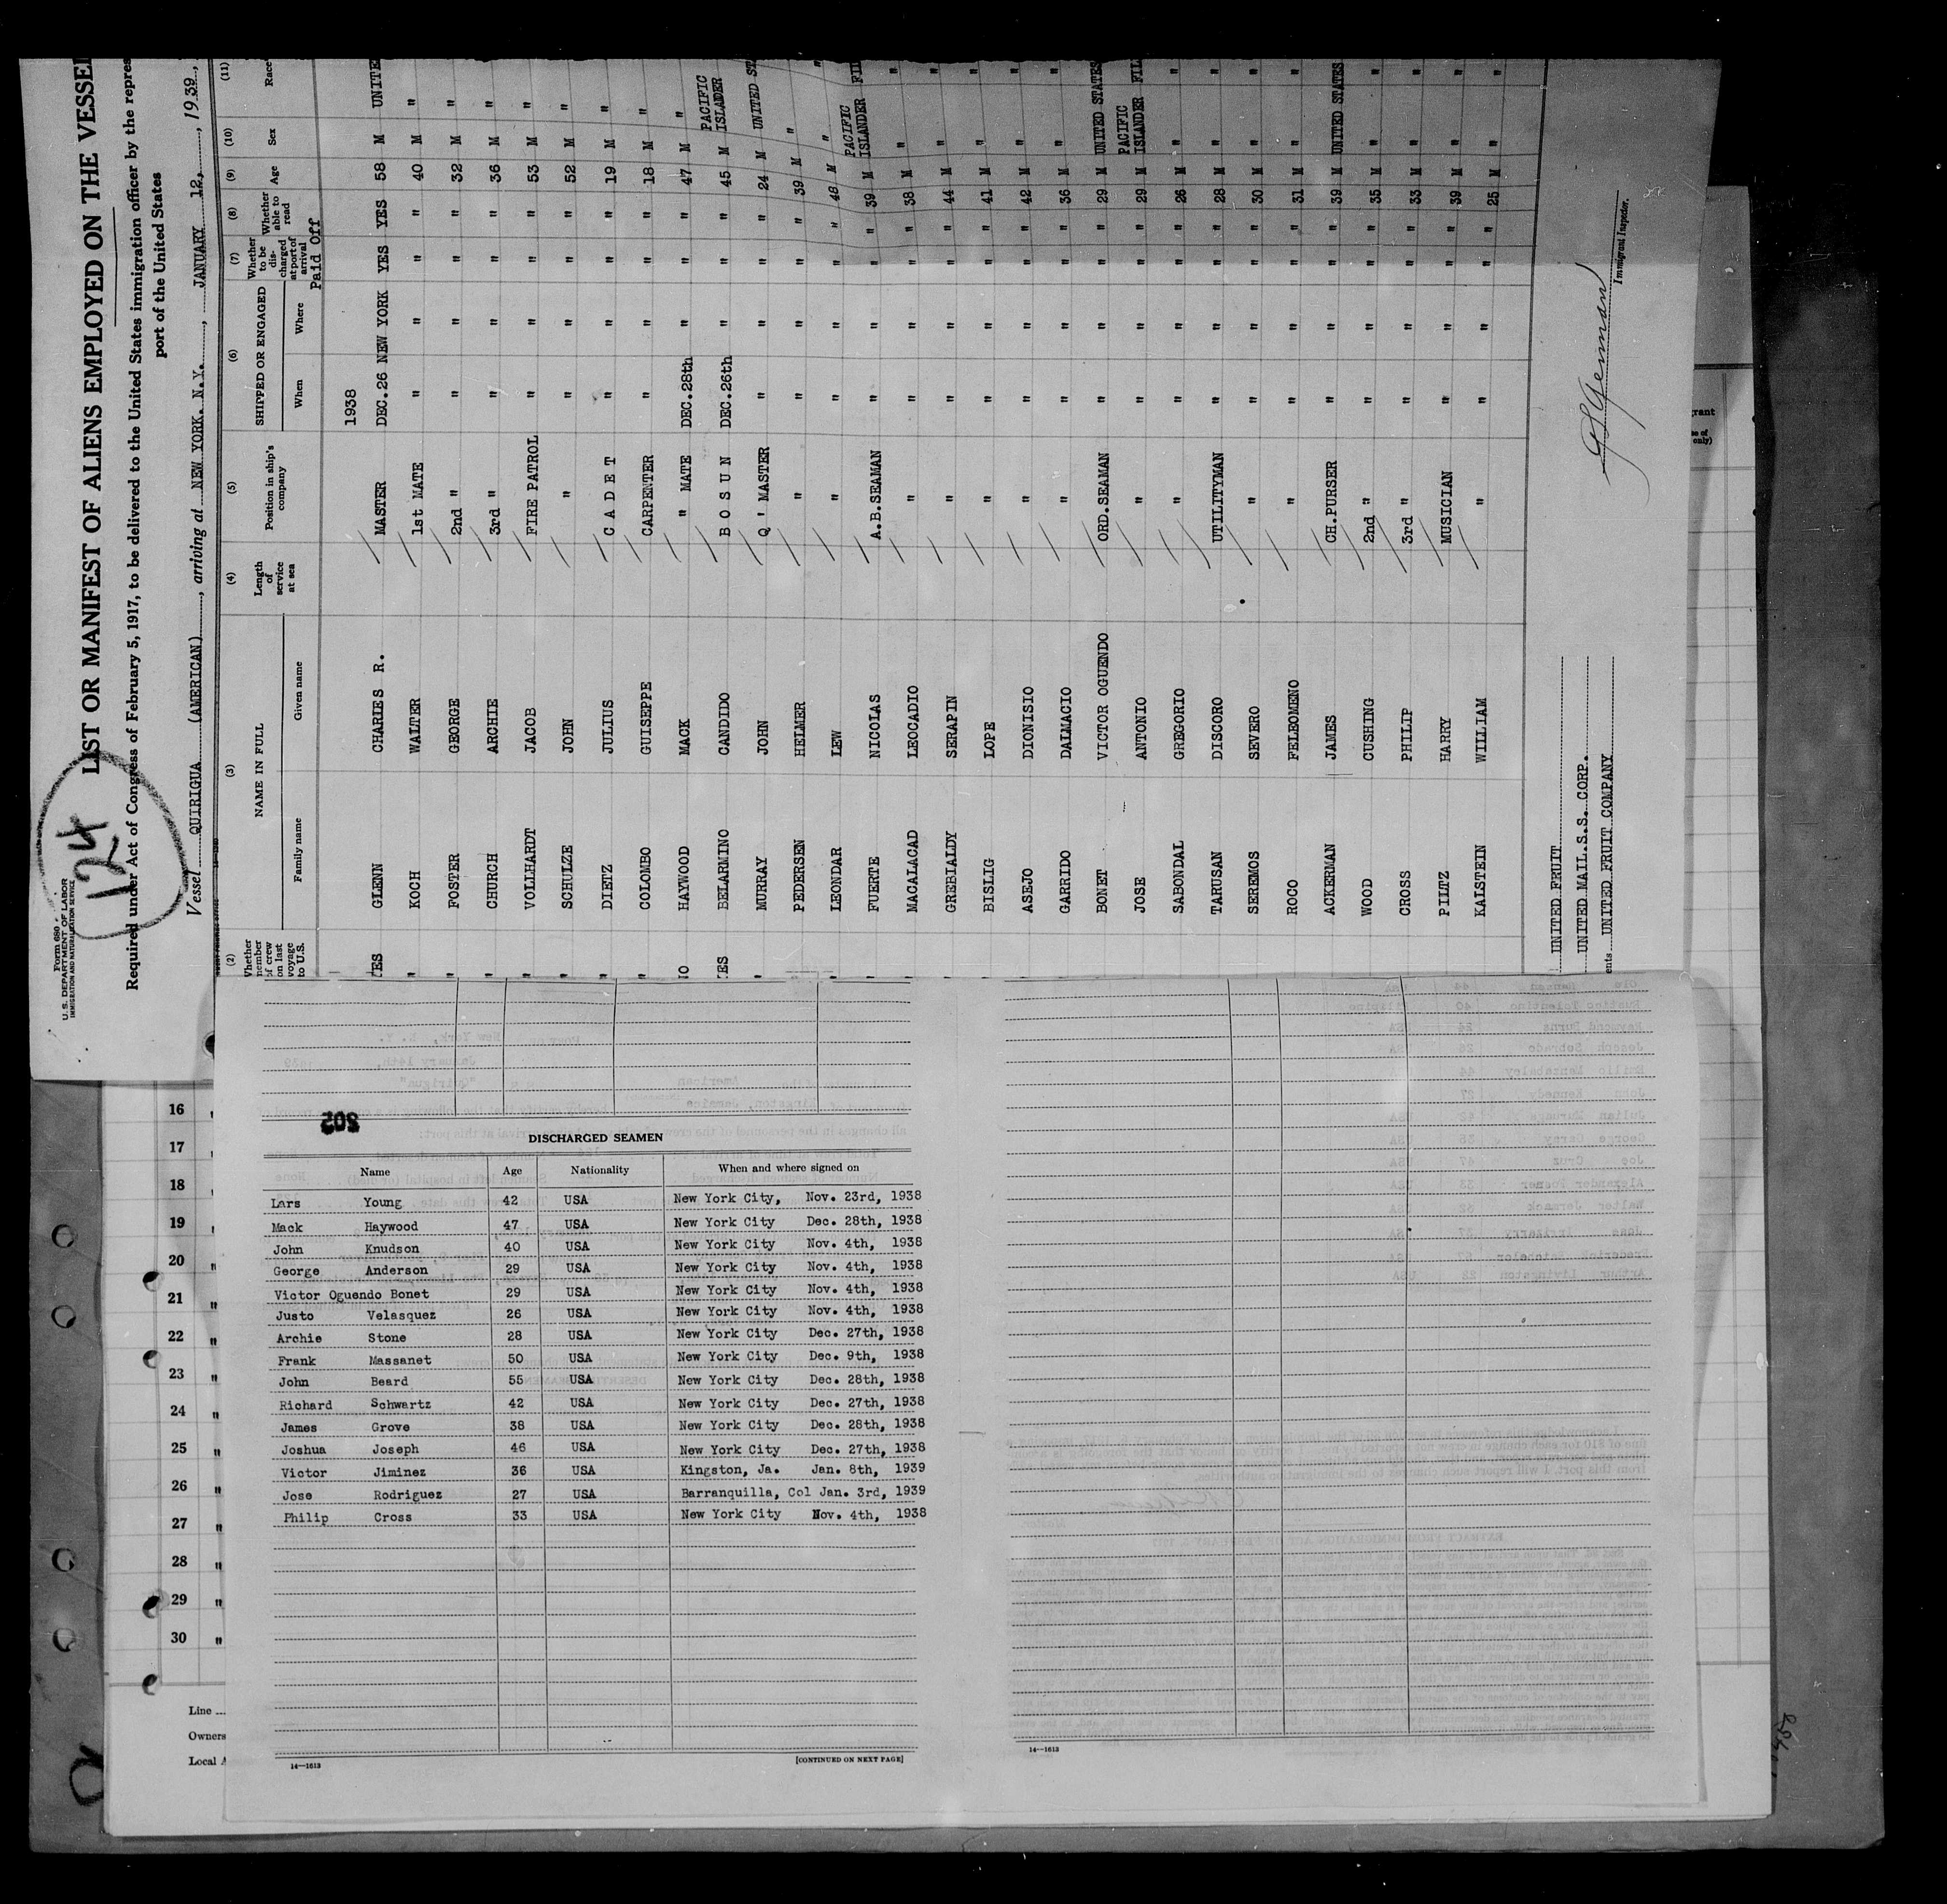 Form 680
U. S. DEPARTMENT OF LABOR
IMMIGRATION AND NATURALIZATION SERVICE
124
LIST OR MANIFEST OF ALIENS EMPLOYED ON THE VESSEL
Required under Act of Congress of February 5, 1917, to be delivered to the United States immigration officer by the repres
port of the United States
Vessel QUIRIGUA (AMERICAN), arriving at NEW YORK. N.Y., JANUARY 12, 1939,
(2) (3) (4) (5) (6) (7) (8) (9) (10) (11)
Whether member of crew on last voyage to U.S. NAME IN FULL Length of service at sea Position in ship's company SHIPPED OR ENGAGED Whether to be discharged at port of arrival Whether able to read Age Sex Race
Family name Given name When Where
1938 Paid Off
YES GLENN CHARLES R. MASTER DEC.26 NEW YORK YES YES 58 M UNITE
" KOCH WALTER 1st MATE " " " " 40 M "
" FOSTER GEORGE 2nd " " " " " 32 M "
" CHURCH ARCHIE 3rd " " " " " 36 M "
" VOLLHARDT JACOB FIRE PATROL " " " " 53 M "
" SCHULZE JOHN " " " " " 52 M "
" DIETZ JULIUS C A D E T " " " " 19 M "
" COLOMBO GUISEPPE CARPENTER " " " " 18 M "
NO HAYWOOD MACK " MATE DEC.28th " " " 47 M "
YES BELARMINO CANDIDO B O S U N DEC.26th " " " 45 M PACIFIC ISLANDER
" MURRAY JOHN Q' MASTER " " " " 24 M UNITED ST
" PEDERSEN HELMER " " " " " 39 M "
" LEONDAR LEW " " " " " 48 M "
" FUERTE NICOLAS A.B.SEAMAN " " " " 39 M PACIFIC ISLANDER FIL
MAGALACAD LEOCCADIO " " " " " 38 M " "
GREBIALDY SERAPIN " " " " " 44 M " "
BISLIG LOPE " " " " " 41 M " "
ASEJO DIONISIO " " " " " 42 M " "
GARRIDO DALMACIO " " " " " 36 M " "
BONET VICTOR OGUENDO ORD.SEAMAN " " " " 29 M UNITED STATES
JOSE ANTONIO " " " " " 29 M PACIFIC ISLANDER FIL
SABONDAL GREGORIO " " " " " 26 M " "
TARUSAN DISCORO UTILITYMAN " " " " 28 M " "
SEREMOS SEVERO " " " " " 30 M " "
ROCO FELEOMENO " " " " " 31 M " "
ACKERMAN JAMES CH.PURSER " " " " 39 M UNITED STATES
WOOD CUSHING 2nd " " " " " 35 M " "
CROSS PHILIP 3rd " " " " " 33 M " "
PILTZ HARRY MUSICIAN " " " " 39 M " "
KALSTEIN WILLIAM " " " " " 25 M " "
UNITED FRUIT
UNITED MAIL.S.S. CORP.
ents UNITED FRUIT COMPANY
Immigrant Inspector.
16
17
18
19
20 "
21 "
22 "
23 "
24 "
25 "
26 "
27 "
28 "
29 "
30 "
Line
Owners
Local A
DISCHARGED SEAMEN
Name Age Nationality When and where signed on
Lars Young 42 USA New York City, Nov. 23rd, 1938
Mack Haywood 47 USA New York City Dec. 28th, 1938
John Knudson 40 USA New York City Nov. 4th, 1938
George Anderson 29 USA New York City Nov. 4th, 1938
Victor Oguendo Bonet 29 USA New York City Nov. 4th, 1938
Justo Velasquez 26 USA New York City Nov. 4th, 1938
Archie Stone 28 USA New York City Dec. 27th, 1938
Frank Massanet 50 USA New York City Dec. 9th, 1938
John Beard 55 USA New York City Dec. 28th, 1938
Richard Schwartz 42 USA New York City Dec. 27th, 1938
James Grove 38 USA New York City Dec. 28th, 1938
Joshua Joseph 46 USA New York City Dec. 27th, 1938
Victor Jiminez 36 USA Kingston, Ja. Jan. 8th, 1939
Jose Rodriguez 27 USA Barranquilla, Col Jan. 3rd, 1939
Philip Cross 33 USA New York City Nov. 4th, 1938
14—1613
[CONTINUED ON NEXT PAGE]
14—1613